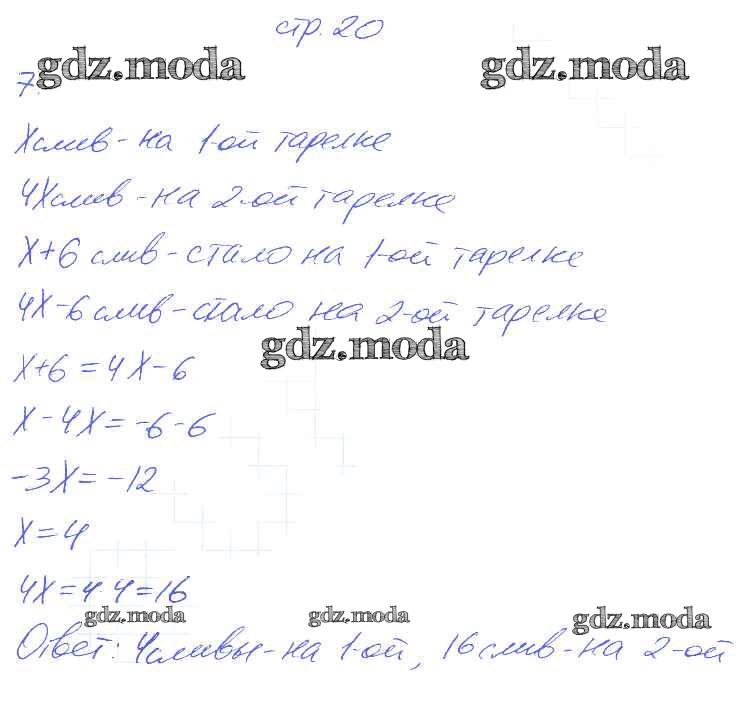 стр. 20
gdz.moda gdz.moda
7.
X слив - на 1-ой тарелке
4X слив - на 2-ой тарелке
X+6 слив - стало на 1-ой тарелке
4X-6 слив - стало на 2-ой тарелке
gdz.moda
X+6=4X-6
X-4X=-6-6
-3X=-12
X=4
4X=4·4=16
gdz.moda gdz.moda gdz.moda
Ответ: 4 сливы - на 1-ой, 16 слив - на 2-ой